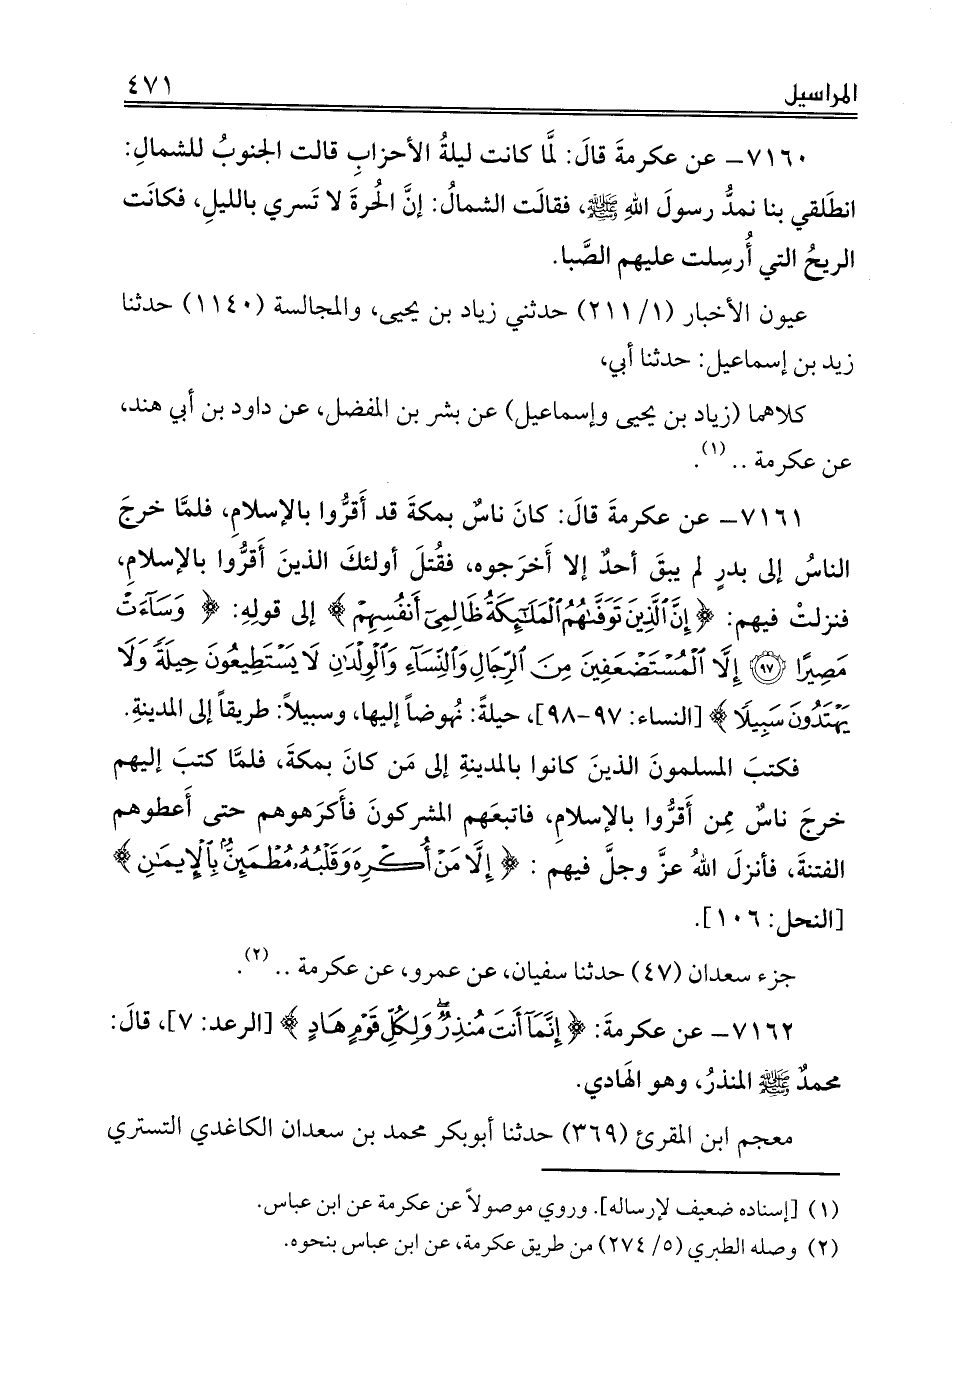 المراسيل
٤٧١
٧١٦٠- عن عكرمةَ قالَ: لمَّا كانت ليلةُ الأحزابِ قالت الجنوبُ للشمالِ:
انطَلقي بنا نمدُّ رسولَ اللهِ ﷺ، فقالَت الشمالُ: إنَّ الحُرةَ لا تَسري بالليلِ، فكانَت
الريحُ التي أُرسِلت عليهم الصَّبا.
عيون الأخبار (١/ ٢١١) حدثني زياد بن يحيى، والمجالسة (١١٤٠) حدثنا
زيد بن إسماعيل: حدثنا أبي،
كلاهما (زياد بن يحيى وإسماعيل) عن بشر بن المفضل، عن داود بن أبي هند،
عن عكرمة .. (١).
٧١٦١- عن عكرمةَ قالَ: كانَ ناسٌ بمكةَ قد أَقرُّوا بالإسلامِ، فلمَّا خرجَ
الناسُ إلى بدرٍ لم يبقَ أحدٌ إلا أَخرَجوه، فقُتلَ أولئكَ الذينَ أَقرُّوا بالإسلامِ،
فنزلتْ فيهم: ﴿إِنَّ ٱلَّذِينَ تَوَفَّىٰهُمُ ٱلْمَلَٰٓئِكَةُ ظَالِمِىٓ أَنفُسِهِمْ﴾ إلى قولِهِ: ﴿وَسَآءَتْ
مَصِيرًا ٩٧ إِلَّا ٱلْمُسْتَضْعَفِينَ مِنَ ٱلرِّجَالِ وَٱلنِّسَآءِ وَٱلْوِلْدَٰنِ لَا يَسْتَطِيعُونَ حِيلَةً وَلَا
يَهْتَدُونَ سَبِيلًا﴾ [النساء: ٩٧-٩٨]، حيلةً: نُهوضاً إليها، وسبيلاً: طريقاً إلى المدينةِ.
فكتبَ المسلمونَ الذينَ كانوا بالمدينةِ إلى مَن كانَ بمكةَ، فلمَّا كتبَ إليهم
خرجَ ناسٌ ممن أَقرُّوا بالإسلامِ، فاتبعَهم المشركونَ فأَكرَهوهم حتى أَعطوهم
الفتنةَ، فأَنزلَ اللهُ عزَّ وجلَّ فيهم: ﴿إِلَّا مَنْ أُكْرِهَ وَقَلْبُهُۥ مُطْمَئِنٌّۢ بِٱلْإِيمَٰنِ﴾
[النحل: ١٠٦].
جزء سعدان (٤٧) حدثنا سفيان، عن عمرو، عن عكرمة .. (٢).
٧١٦٢- عن عكرمةَ: ﴿إِنَّمَآ أَنتَ مُنذِرٌ ۖ وَلِكُلِّ قَوْمٍ هَادٍ﴾ [الرعد: ٧]، قالَ:
محمدٌ ﷺ المنذرُ، وهو الهَادي.
معجم ابن المقرئ (٣٦٩) حدثنا أبوبكر محمد بن سعدان الكاغدي التستري
(١) [إسناده ضعيف لإرساله]. وروي موصولاً عن عكرمة عن ابن عباس.
(٢) وصله الطبري (٥/ ٢٧٤) من طريق عكرمة، عن ابن عباس بنحوه.